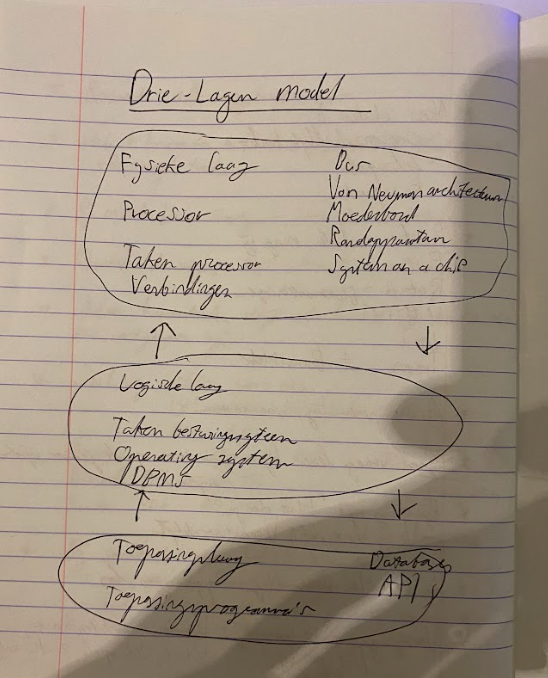 Drie-Lagen model
Fysieke laag
Processor
Taken processor
Verbindingen
Bus
Von Neuman architectuur
Moederbord
Randapparatuur
System on a chip
Logische laag
Taken besturingssysteem
Operating system
DBMS
Toepassingslaag
Toepassingsprogramma's
Database
API